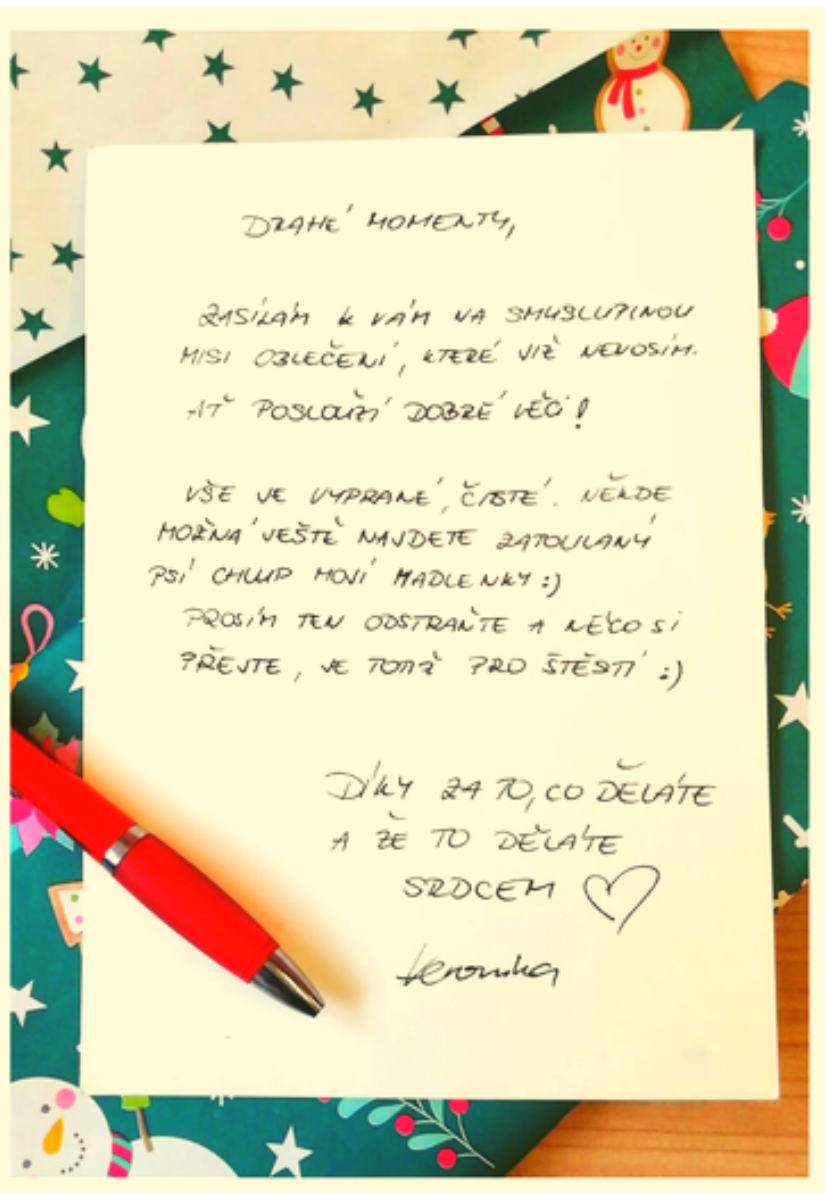 DRAHÉ MOMENTY,
ZASÍLÁM K VÁM NA SMYSLUPLNOU
MISI OBLEČENÍ, KTERÉ JIŽ NENOSÍM.
AŤ POSLOUŽÍ DOBRÉ VĚCI!
VŠE JE VYPRANÉ, ČISTÉ. NĚKDE
MOŽNÁ JEŠTĚ NAJDETE ZATOULANÝ
PSÍ CHLUP MOJÍ MADLENKY :)
PROSÍM TEN ODSTRAŇTE A NĚCO SI
PŘEJTE, JE TOTIŽ PRO ŠTĚSTÍ :)
DÍKY ZA TO, CO DĚLÁTE
A ŽE TO DĚLÁTE
SRDCEM ♡
Veronika